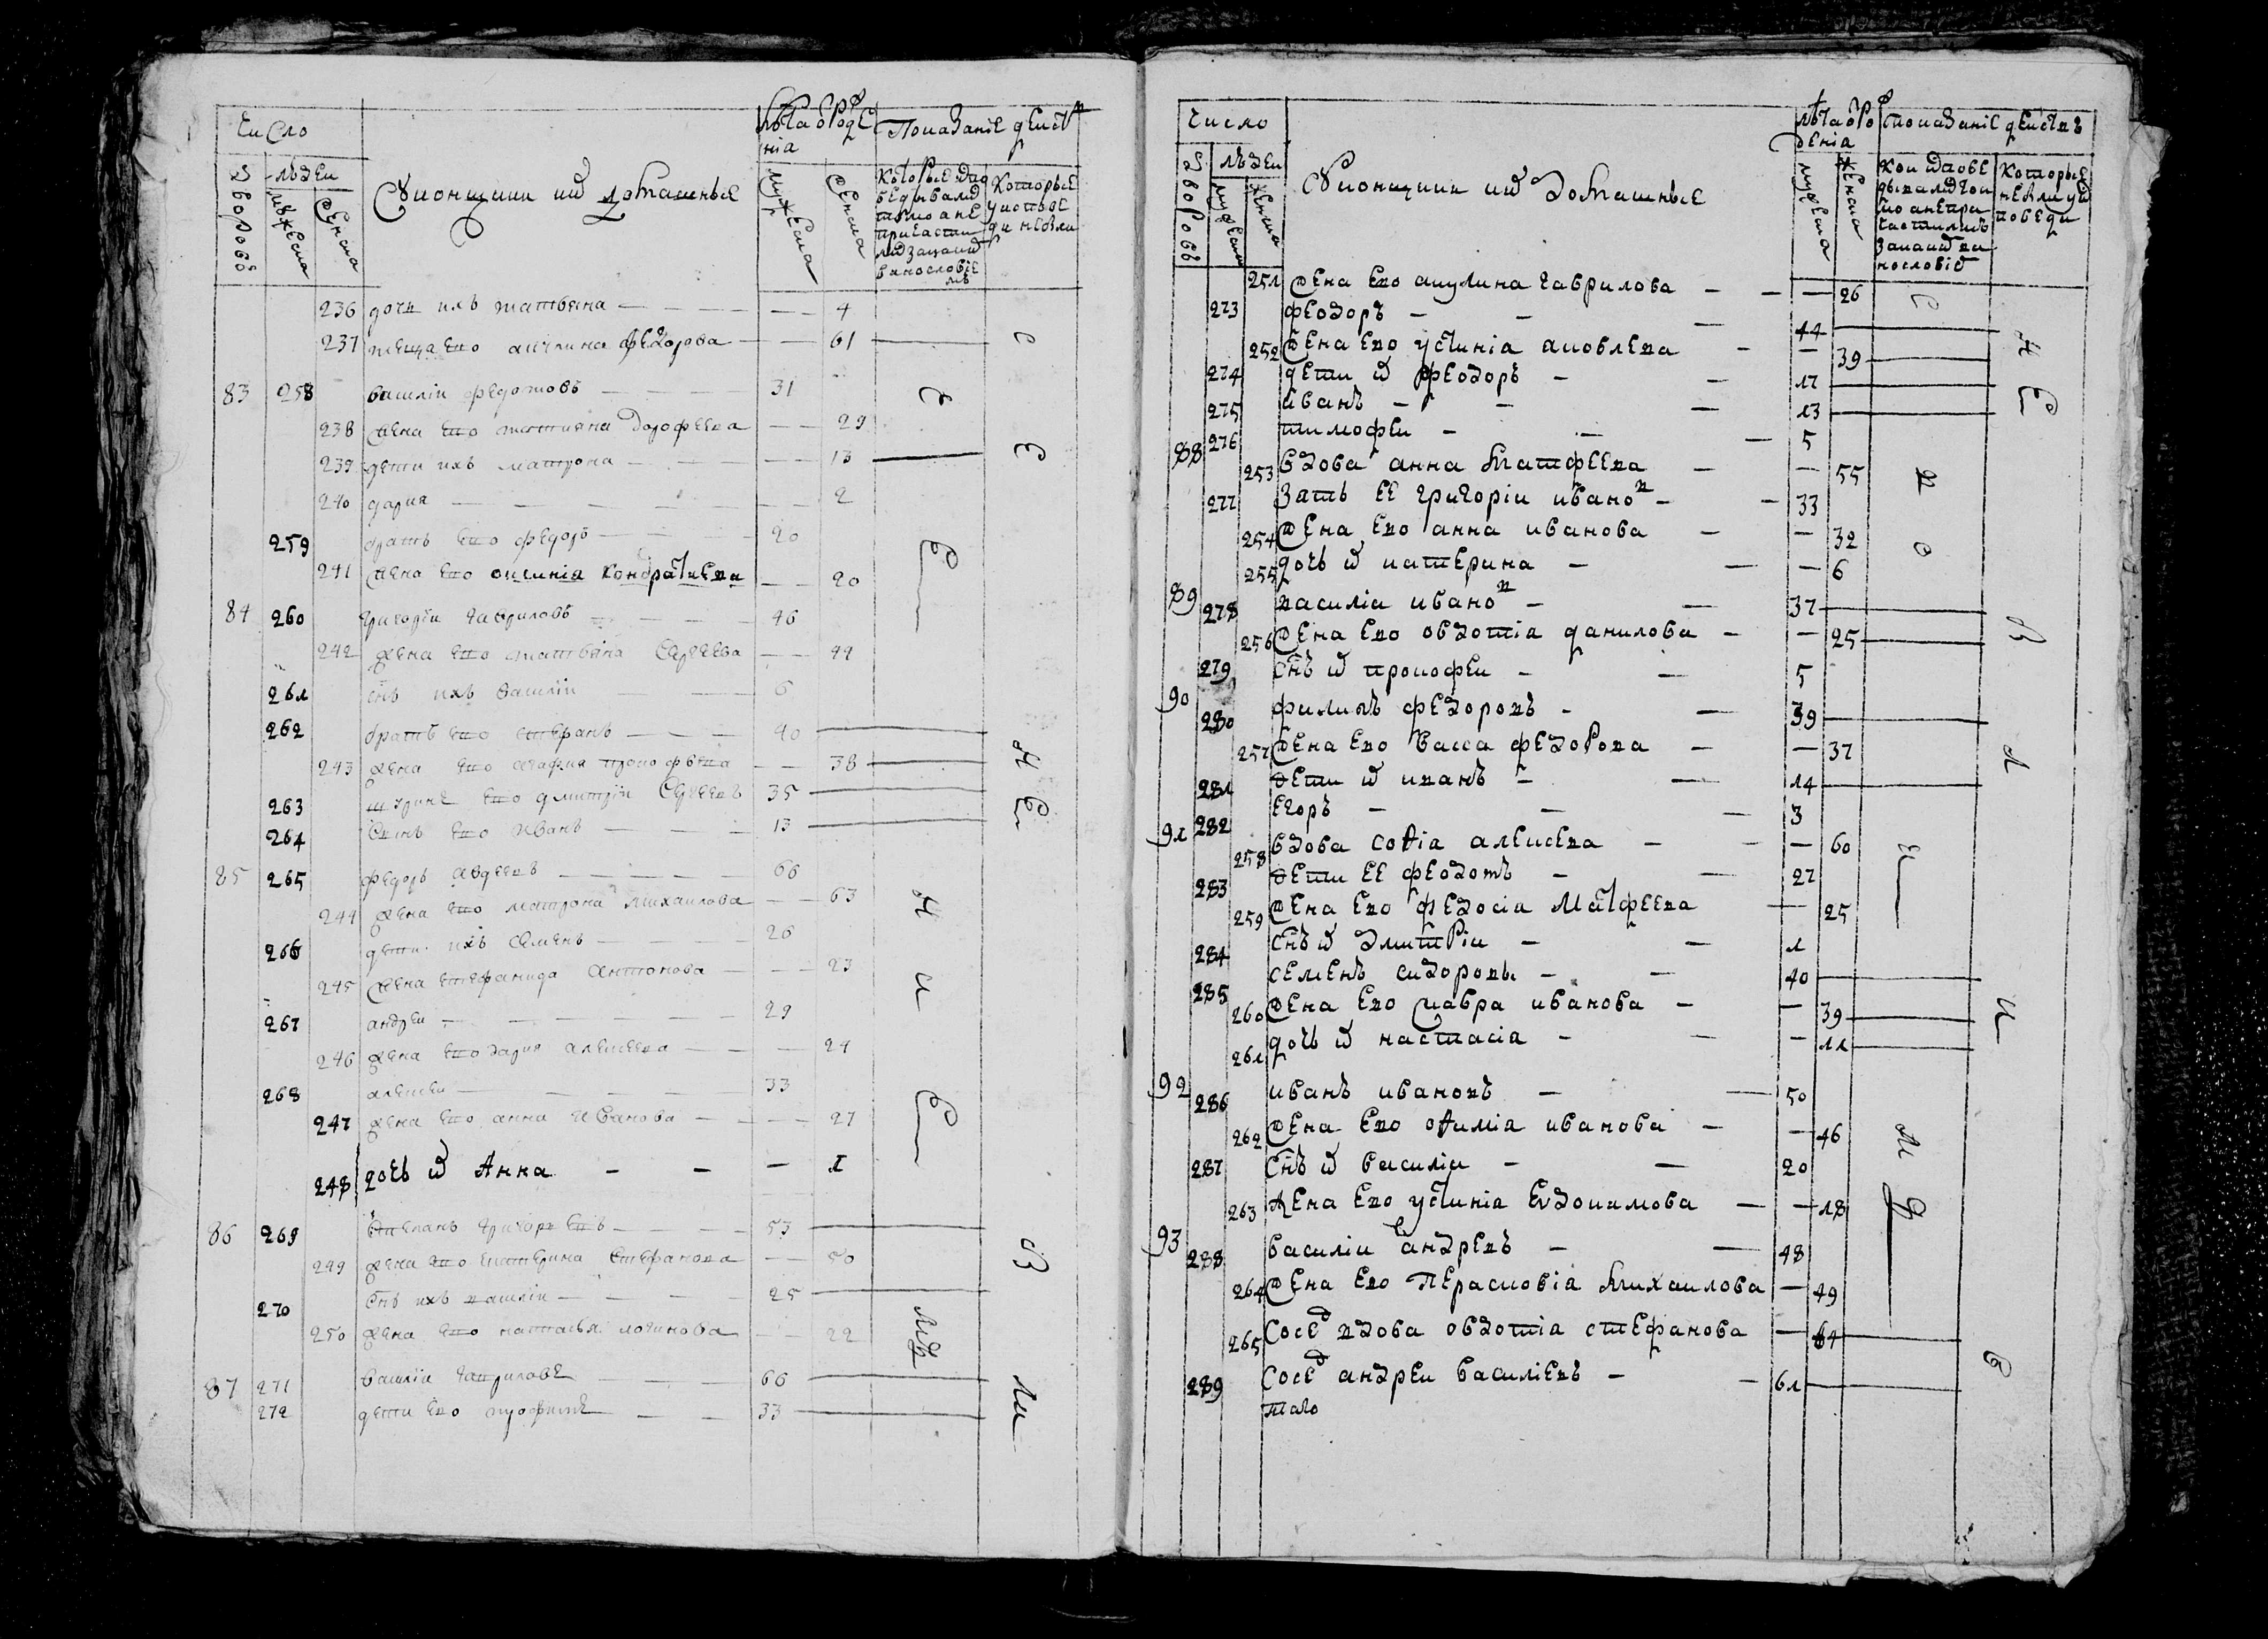 число
лѣта о рожденія
Показаніе дѣиств
дворовъ
людеи
мужеска
женска
Суконщики их домашные
которые исповедывалис токмо а не причастилис за каким винословіем
которые у исповеди не были
236 дочь ихъ татьяна — — — 4
237 теща ево акулина федорова — — 61
83 258 василіи федотовъ — — — 31
238 жена ево татияна дорофеева — — 29
239 дети ихъ матрона — — — 13
240 дария — — — — 2
259 братъ ево федоръ — — — 20
241 жена ево оксинія кондратиева — 20
84 260 григореи гавриловъ — — — 46
242 жена ево татьяна сергеева — — 44
261 снъ ихъ василіи — — 6
262 братъ ево степанъ — — — 40
243 жена ево агафия прокофьева — — 38
263 шуринъ ево дмитріи сергеевъ 35
264 сынъ ево иванъ — — — 13
85 265 федоръ авдеевъ — — — 66
244 жена ево матрона михаилова — — 63
266 дети ихъ семенъ — — — 26
245 жена степанида антонова — — 23
267 андреи — — — — 29
246 жена ево дария алексеева — — 24
268 алексеи — — — — 33
247 жена ево анна иванова — — — 27
248 дочь их Анна — — — 1
86 269 степанъ григорьевъ — — — 53
249 жена ево катерина степанова — — 50
270 снъ ихъ василіи — — — 25
250 жена ево наталья логинова — — 22
87 271 василіи гавриловъ — — — 66
272 дети ево — — 33
число
лѣта о рожденія
показаніе дѣиствъ
дворовъ
людеи
мужеска
женска
Суконщики их домашные
кои исповедывалис токмо а не причастились за каким винословіем
которые не были у исповеди
251 жена ево акулина гаврилова — — — 26
273 феодоръ — — — 44
252 жена ево устинія яковлева — — 39
274 дети их феодоръ — — 17
275 иванъ — — — 13
276 тимофеи — — — 5
88 253 вдова анна матфеева — — 55
277 зать ее григоріи иванов — — 33
254 жена ево анна иванова — — 32
255 дочь их катерина — — — 6
89 278 василіи иванов — — 37
256 жена ево овдотіа данилова — — 25
279 снъ их прокофеи — — 5
90 280 филипъ федоровъ — — 39
257 жена ево васса федорова — — 37
281 дети их иванъ — — 14
282 егоръ — — — 3
91 258 вдова софіа алексеева — — — 60
283 дети ее феодотъ — — 27
259 жена ево федосіа матфеева — 25
284 снъ их дмитріи — — 1
285 семенъ сидоровъ — — 40
260 жена ево мавра иванова — — 39
261 дочь их настасіа — — — 11
92 286 иванъ ивановъ — — 50
262 жена ево офиміа иванова — — 46
287 снъ их василіи — — 20
263 жена ево устиніа евдокимова — — 18
93 288 василіи андревъ — — 48
264 жена ево перасковіа михаилова — 49
265 сосед вдова овдотіа стефанова — 64
289 сосед андреи василіевъ — — 61
того